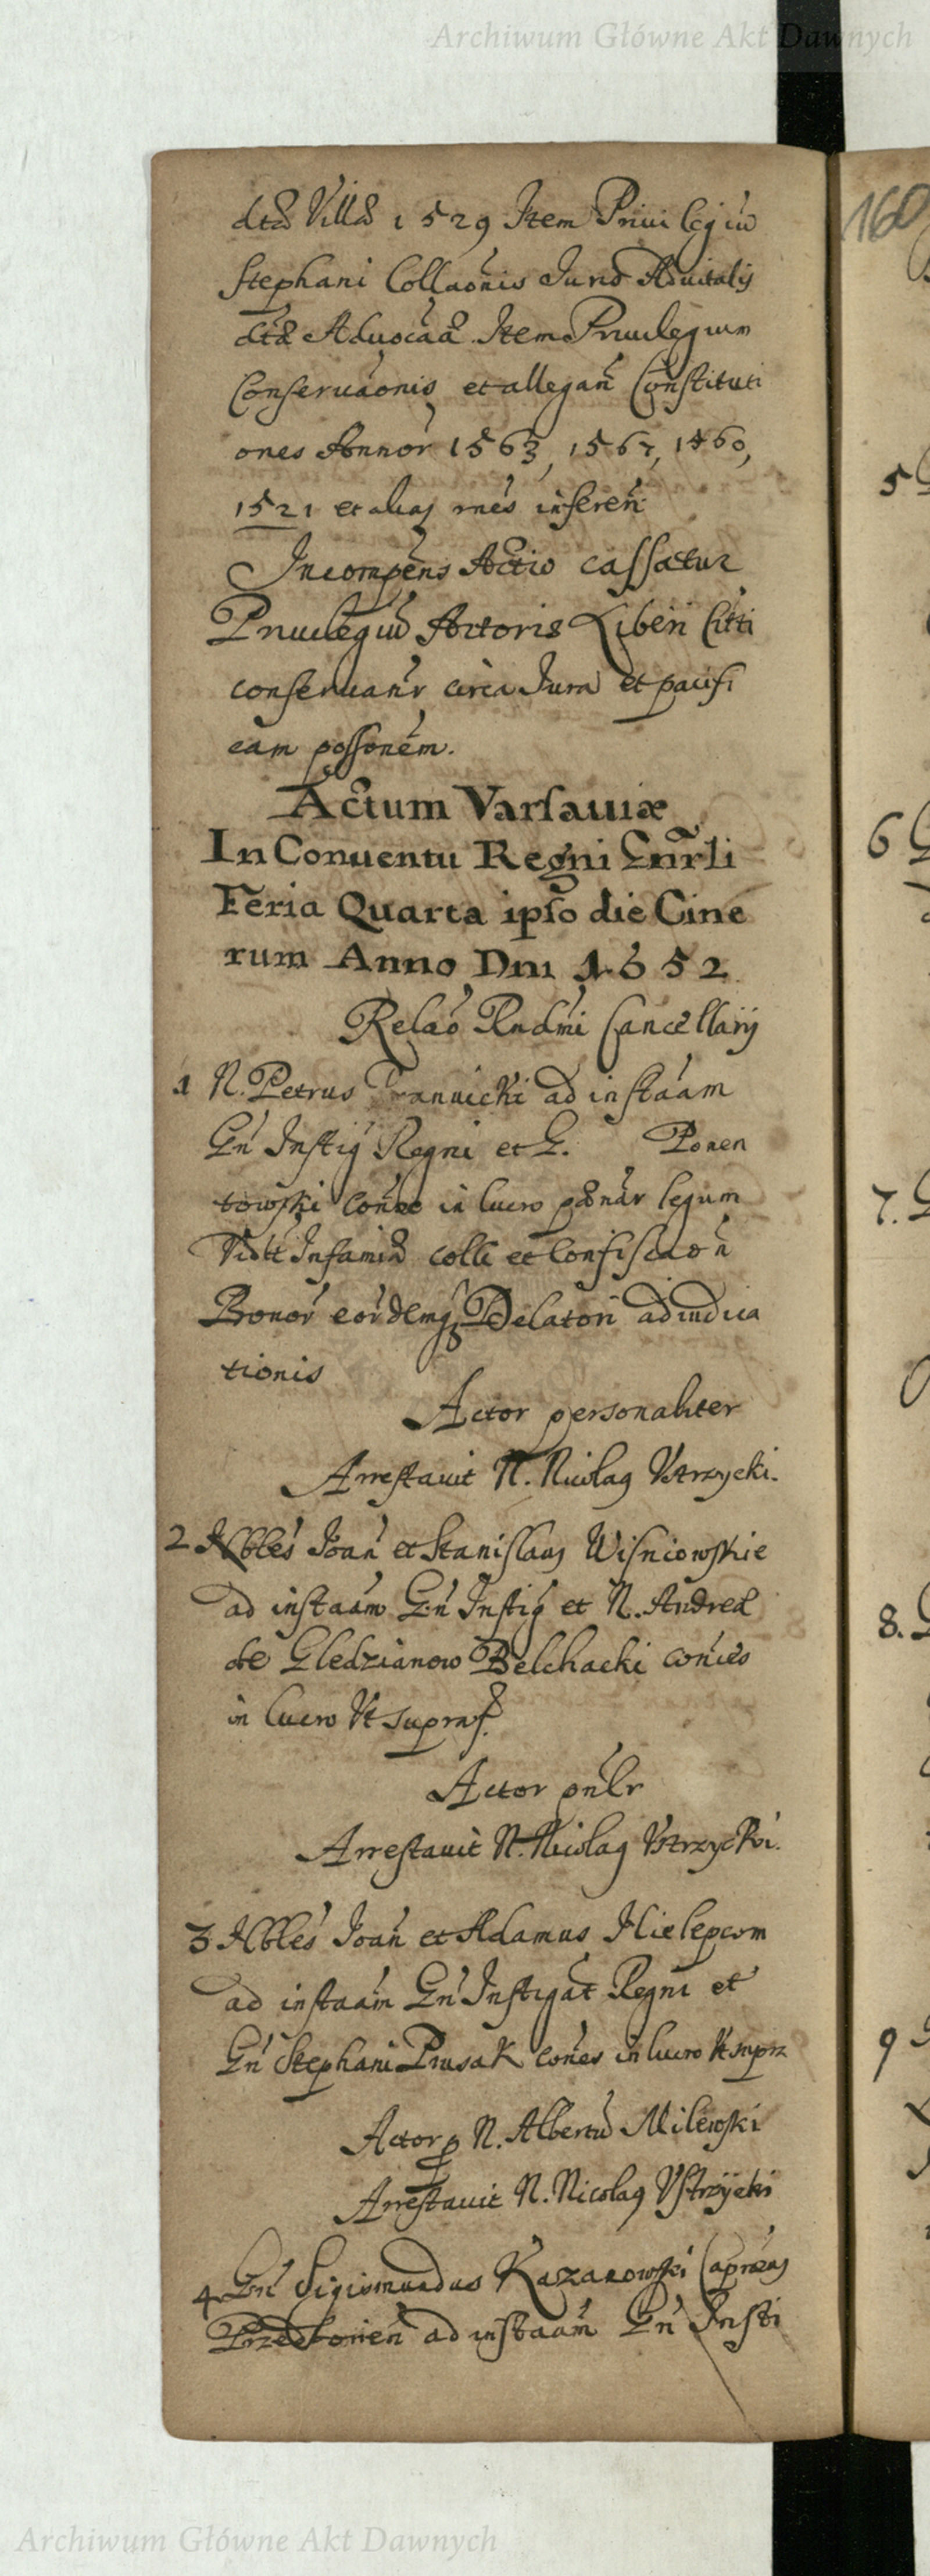 Archiwum Główne Akt Dawnych
160
dtã Villã 1529 Item Privilegiũ
Stephani Collaõnis Juris Advitalis
dtã Advocãa Item Privilegium
Conservaõnis et allegañ Constituti
ones Annor 1563, 1567, 1460,
1521 et alias rnẽs inferen̄
Incompẽns Actio cassatur
Privilegiũ Actoris Liberi Citti
conservanr circa Jura et pacifi
cam possonẽm.
Actum Varsaviæ
In Conventu Regni Gnr̃li
Feria Quarta ipso die Cine
rum Anno Dni 1652
Relaõ Rndmi Cancellarij
1 N. Petrus ad instãam
Gn̄ Instig Regni et G. Ponen
towski in lucro pænar legum
Vidtt Infamiæ colli et Confiscaõn
Bonor eordemq Delatori adiudica
tionis
Actor personaliter
Arrestavit N. Nicolaq Vstrzycki.
2 Nbbles Joan̄ et Stanislaus Wisniowskie
ad instaam Gn̄ Instig et N. Andreæ
de Gledzianow Belchacki
in lucro Vt supra
Actor pn̄lr
Arrestavit N. Nicolaq Vstrzycki.
3 Nbbles Joan̄ et Adamus
ad instaam Gn̄ Instigat Regni et
Gn̄ Stephani Prusak in lucro Vt supr
Actor p N. Albertũ Milewski
Arrestavit N. Nicolaq Vstrzycki
4. Gn̄ Sigismundus Kazanowski
ad instaam Gn̄ Insti
5
6
7.
8.
9
Archiwum Główne Akt Dawnych